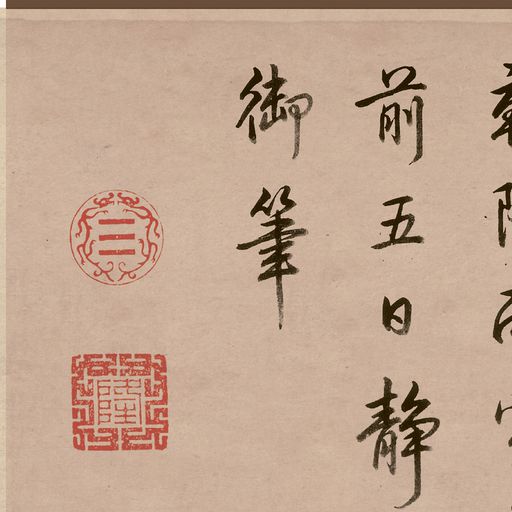 前五日静
御筆
☰
隆